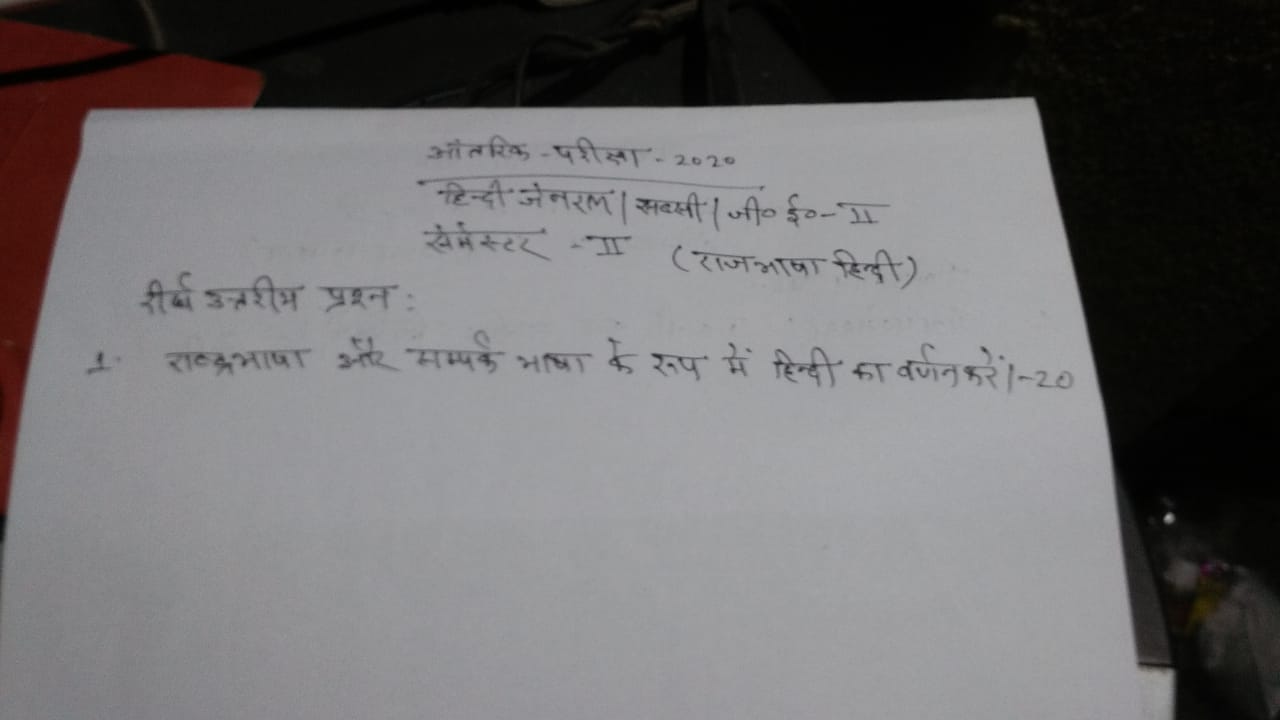 आंतरिक - परीक्षा - 2020
हिन्दी जेनरल / सबसी / जी० ई० - II
सेमेस्टर - II (राजभाषा हिन्दी)
दीर्घ उत्तरीय प्रश्न :
1. राष्ट्रभाषा और सम्पर्क भाषा के रूप में हिन्दी का वर्णन करें। - 20